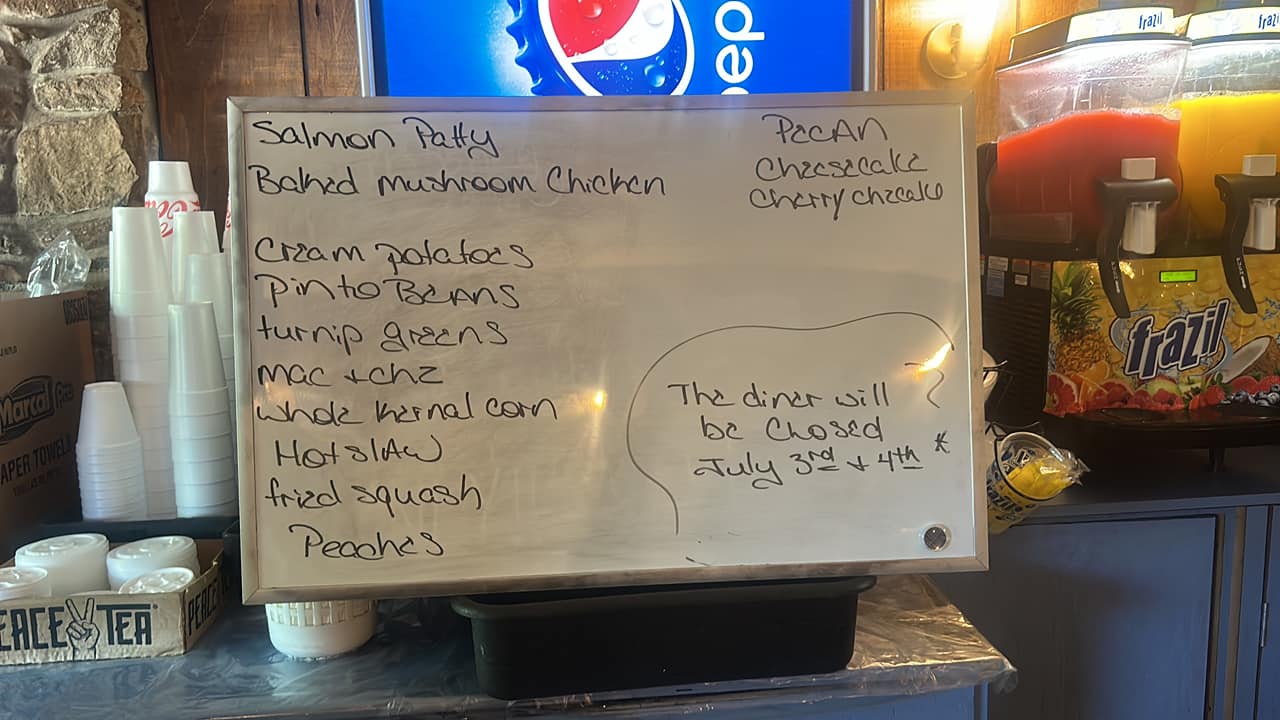 Salmon Patty
Baked mushroom Chicken
Cream potatoes
Pinto BEANS
turnip greens
mac + chz
whole kernal corn
Hot slAw
fried squash
Peaches
PecAn
Cheesecake
Cherry checake
The diner will
be Closed
July 3rd + 4th *
pep
frazil
frazil
frazil
Marcal Pro
PAPER TOWELS
PEACE TEA